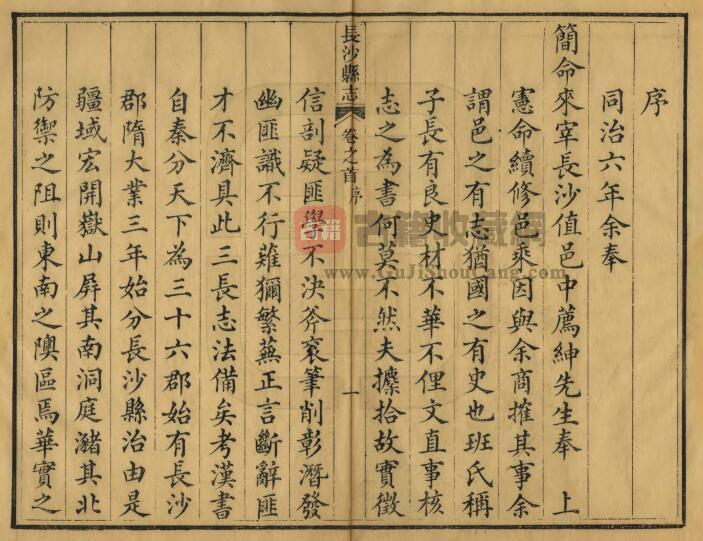 序
同治六年余奉
簡命來宰長沙值邑中薦紳先生奉　上
憲命續修邑乘因與余商搉其事余
謂邑之有志猶國之有史也班氏稱
子長有良史材不華不俚文直事核
志之為書何莫不然夫攈拾故實徵
長沙縣志
卷之首 序
一
信剖疑匪學不決斧袞筆削彰潛發
幽匪識不行薙獮繁蕪正言斷辭匪
才不濟具此三長志法備矣考漢書
自秦分天下為三十六郡始有長沙
郡隋大業三年始分長沙縣治由是
疆域宏開嶽山屏其南洞庭瀦其北
防禦之阻則東南之隩區焉華實之
古籍收藏網
www.GuJiShouCang.com
古籍